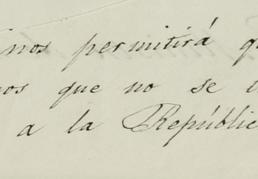 nos permitirá q
os que no se
a la Repúblic